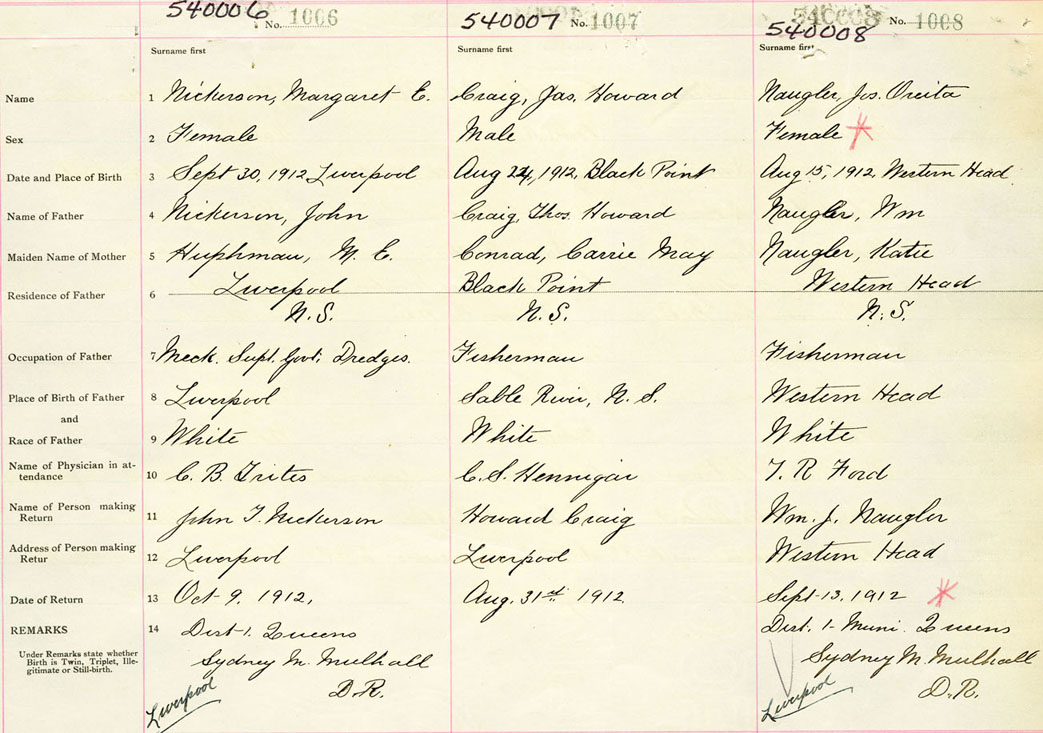 540006 No. 1006
540007 No. 1007
540008 No. 1008
Surname first
Surname first
Surname first
Name 1 Nickerson, Margaret E. Craig, Jas. Howard Naugler, Jos. Oreita
Sex 2 Female Male Female
Date and Place of Birth 3 Sept 30, 1912 Liverpool Aug 24, 1912, Black Point Aug 15, 1912, Western Head
Name of Father 4 Nickerson, John Craig, Thos. Howard Naugler, Wm
Maiden Name of Mother 5 Huphman, M. E. Conrad, Carrie May Naugler, Katie
Residence of Father 6 Liverpool Black Point Western Head
N.S. N.S. N.S.
Occupation of Father 7 Mech. Supt. Govt. Dredges. Fisherman Fisherman
Place of Birth of Father 8 Liverpool Sable River, N.S. Western Head
and
Race of Father 9 White White White
Name of Physician in at-
tendance 10 C. B. Trites C. S. Hennigar T. R Ford
Name of Person making
Return 11 John T. Nickerson Howard Craig Wm. J. Naugler
Address of Person making
Retur 12 Liverpool Liverpool Western Head
Date of Return 13 Oct 9, 1912, Aug. 31st 1912 Sept 13, 1912
REMARKS 14 Dist 1. Queens Dist. 1- Muni. Queens
Under Remarks state whether
Birth is Twin, Triplet, Ille-
gitimate or Still-birth.
Sydney M. Mulhall Sydney M Mulhall
Liverpool D.R. Liverpool D.R.